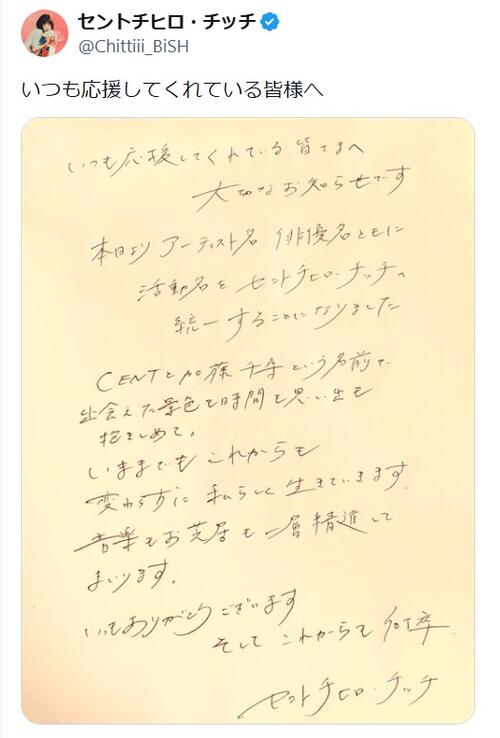 セントチヒロ・チッチ
@Chittiii_BiSH
いつも応援してくれている皆様へ
いつも応援してくれている皆さまへ
大切なお知らせです
本日より アーティスト名 俳優名ともに
活動名を セントチヒロ・チッチへ
統一することになりました
CENTと加藤千尋という名前で
出会えた景色も時間も思い出も
抱きしめて。
いままでも これからも
変わらずに 私らしく 生きていきます。
音楽もお芝居も一層精進して
まいります。
いつもありがとうございます
そして これからも 何卒
セントチヒロ・チッチ